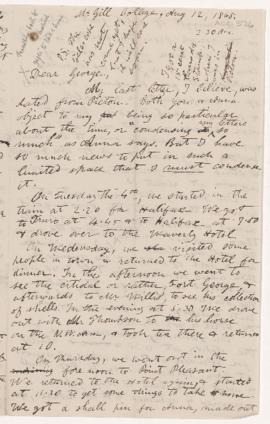 McGill College, Aug 12, 1868.
2.30 P.M.
Dear George,
My last letter, I believe, was
dated from Pictou. Both you & Anna
object to my being so particular
about the time, or condensing my letters so
much as Anna says. But I have
so much news to put in such a
limited space that I must condense
it.
On Tuesday the 4th, we started in the
train at 2.20 for Halifax. We got
to Truro at 4.40 & to Halifax at 7.30
& drove over to the Waverly Hotel.
On Wednesday, we visited some
people in town & returned to the Hotel for
dinner. In the afternoon we went to
see the citidal or rather, Fort George, &
afterwards to Mr Willis', to see his collection
of shells. In the evening at 5.30 we drove
out with Mr Thompson to his house
on the & took tea there & returned
at 10.
On Thursday, we went out in the
fore noon to Point Pleasant.
We returned to the Hotel again & started
at 1.30 to get some things to take home
We got a shell pin for Anna, made out